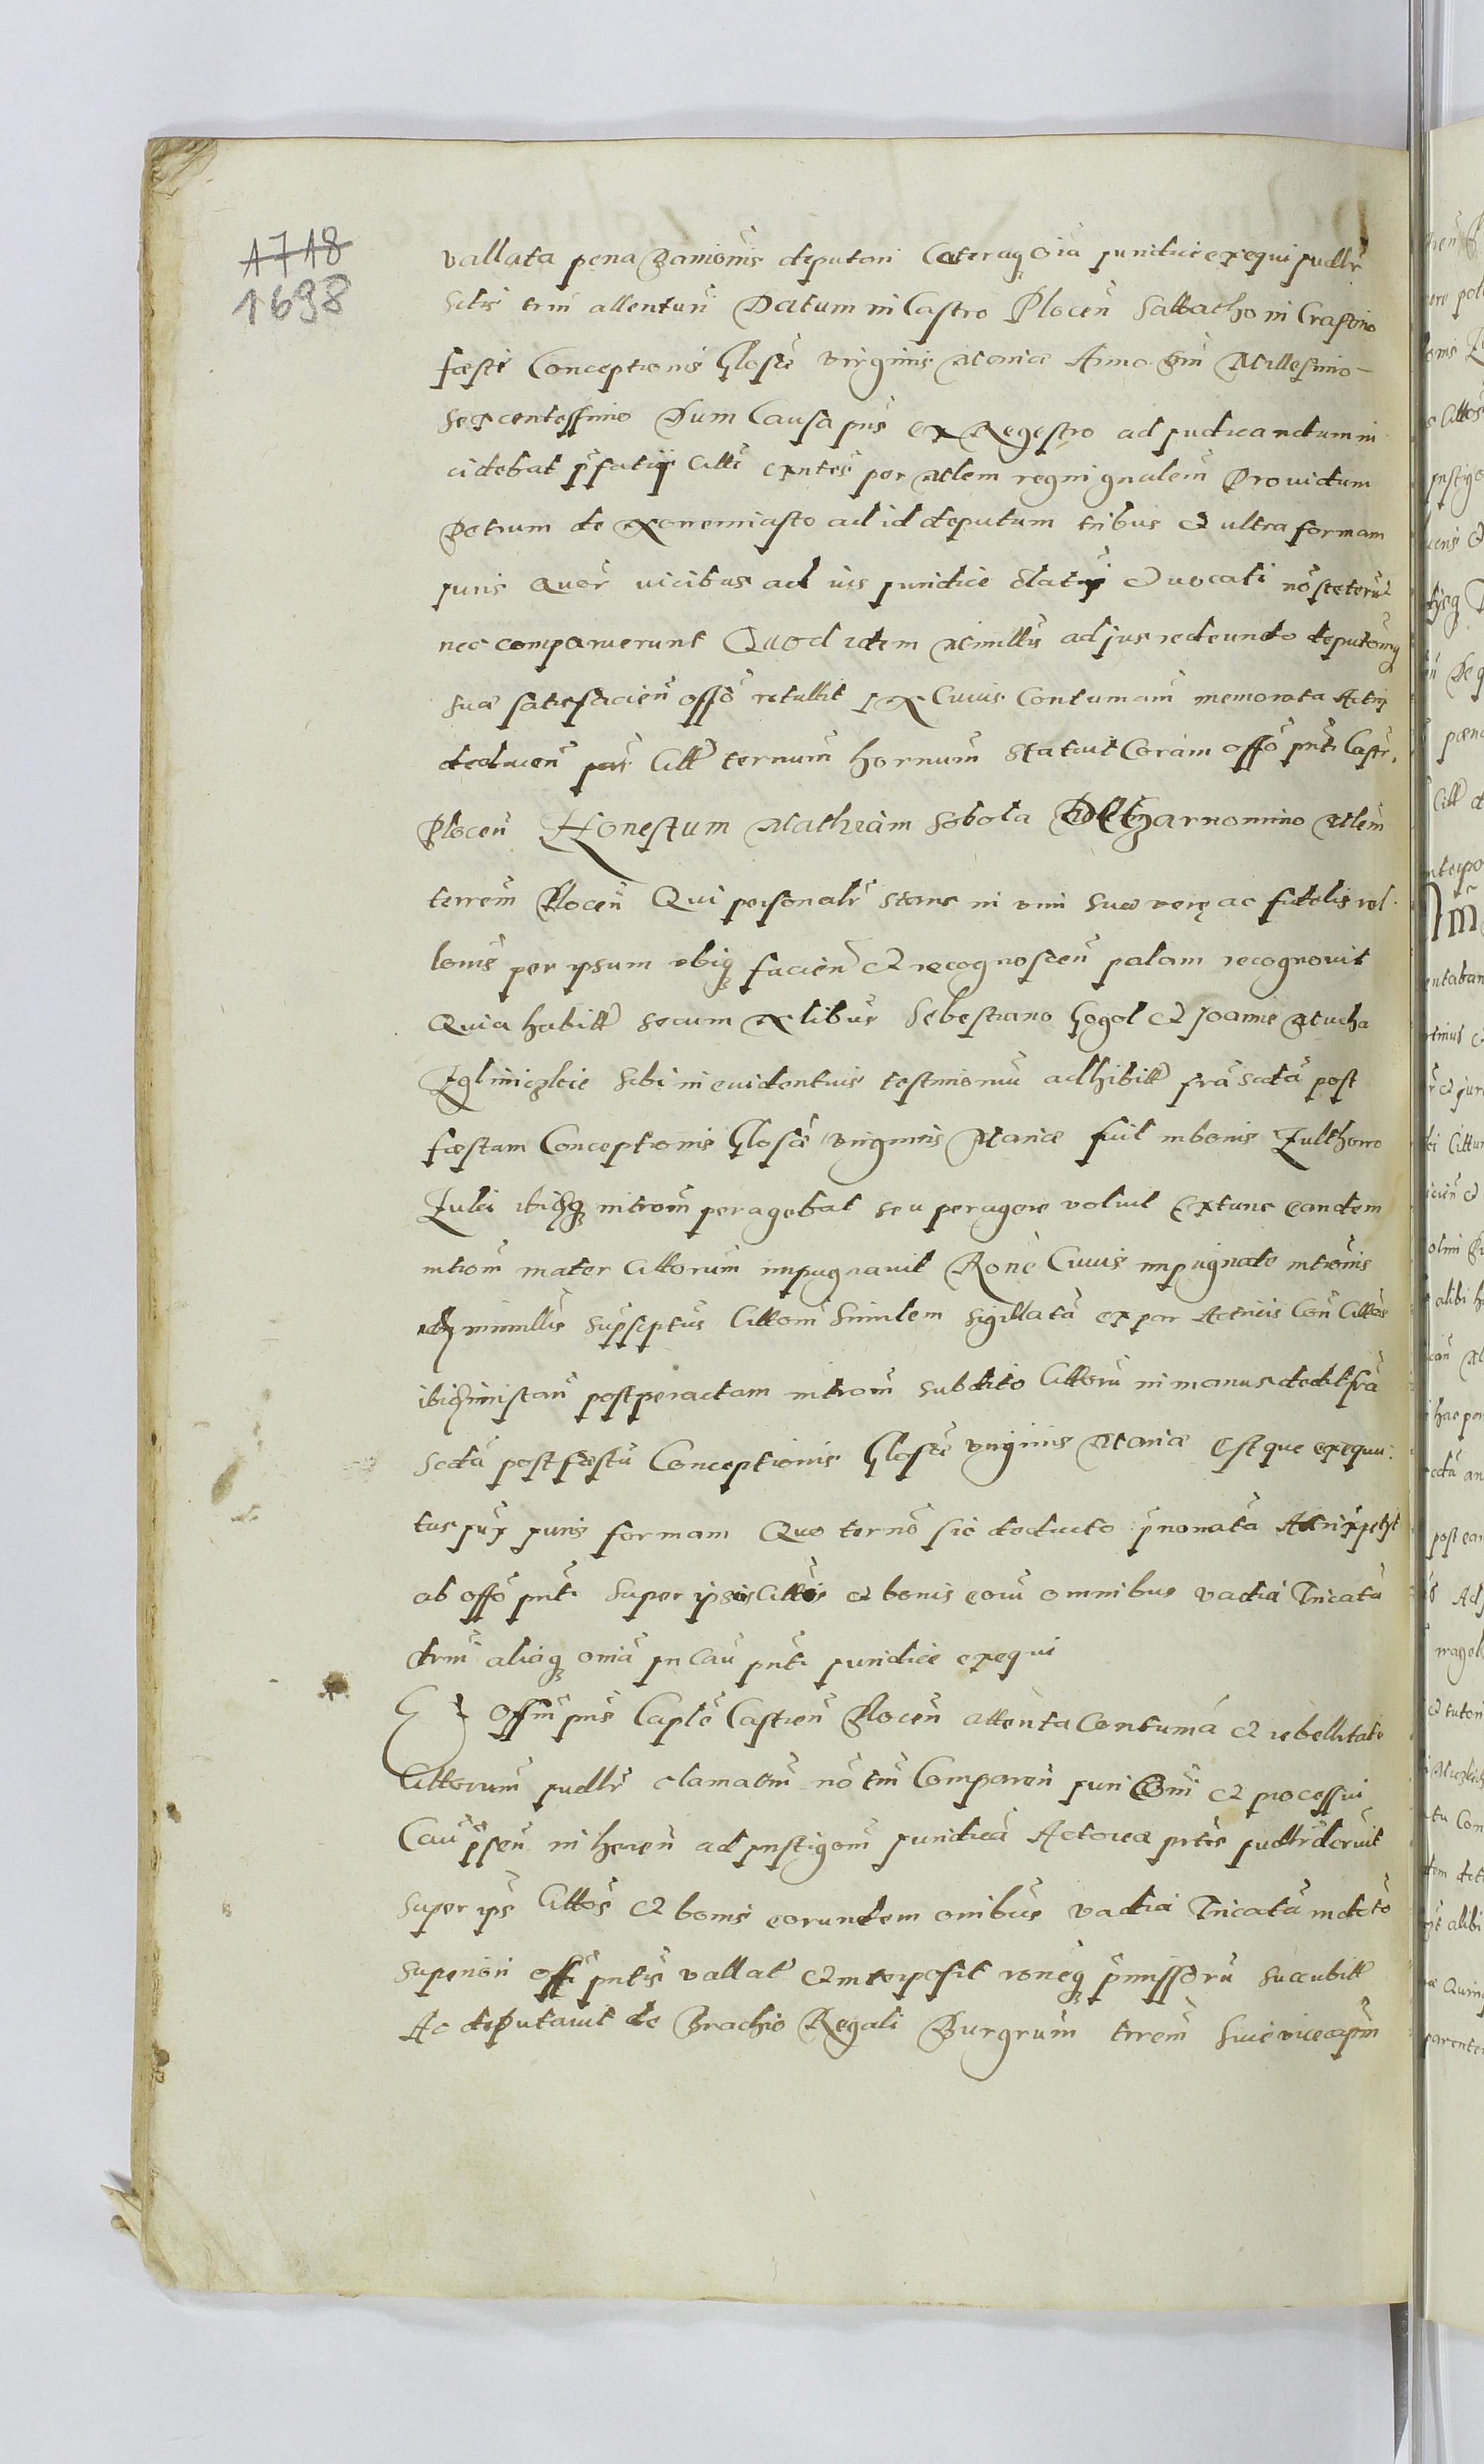 1718
1698
vallata pena banionis deputari Caeteraq oia juridice exequi judlr
Sitis trm attenturi Datum in Castro Plocen Sabbatho in Crastino
fæsti Conceptionis Glosæ virginis Mariæ Anno Dni Millesimo
Sexcentessimo Dum Causa pns ex Regestro ad judicandum in
cidebat pfatij Citti exntes per Mlem regni gnalem Providum
Petrum de Xonemiasto ad id deputum tribus et ultra formam
juris quor vicibus ad ius juridice clati et vocati no steterut
nec comparuerunt Quod idem Minllis ad jus redeundo deputoniq
suæ satisfacien offo retullit Ex Cuius Contumam memorata Actrix
deducen Citt ternum hornum Statuit Coram offo pnti Castr.
Plocen Honestum Mathiam Sobola de Charnomino Mlem
terrem Plocen Qui personalr stans in vim suæ veræ ac fidelis rel
lonis per ipsum ubiq facien et recognoscen palam recognovit
Quia habitt secum Nlibus Sebestiano Gogol et Joanne Mucha
Zgliniczkie sibi in evidentius testimoniu adhibitt fra scda post
fæstam Conceptionis Glosæ virginis Mariæ fuit in bonis Zulthowo
Zulki ibidq introm peragebat seu peragere voluit Extunc eandem
introm mater Cittorum impugnavit Rone Cuius impugnate intronis
idem minllis supsciptus Cittom Similem sigillata ex par Actricis Con Cittos
ibid instan post peractam introm subdito Cittoru in manus dedit fra
scda post fæstu Conceptionis Glosæ virginis Mariæ Est que exequu
tus jux juris formam Quo terno sic deducto pnomata Actrix petijt
ab offo pnti super ipsis Cittis et bonis eoru omnibus vadia Tricata
drm aliaq omia in Cau pnti juridice exequi
Et Offm pns Caple Castren Plocen attenta Contuma et rebellitate
Cittorum judlr clamatm no tm Comparen juri Comi et processui
Cau psen in heren ad instigom juridica Actoreæ prtis judlr decrevit
super ips Cittos et bonis eorundem omibus vadia Tricata indcto
superiori offi pntis vallat et interposit roneq pmissoru succubitt
Ac deputavit de Brachio Regali Burgrum trrem sive vicecapm